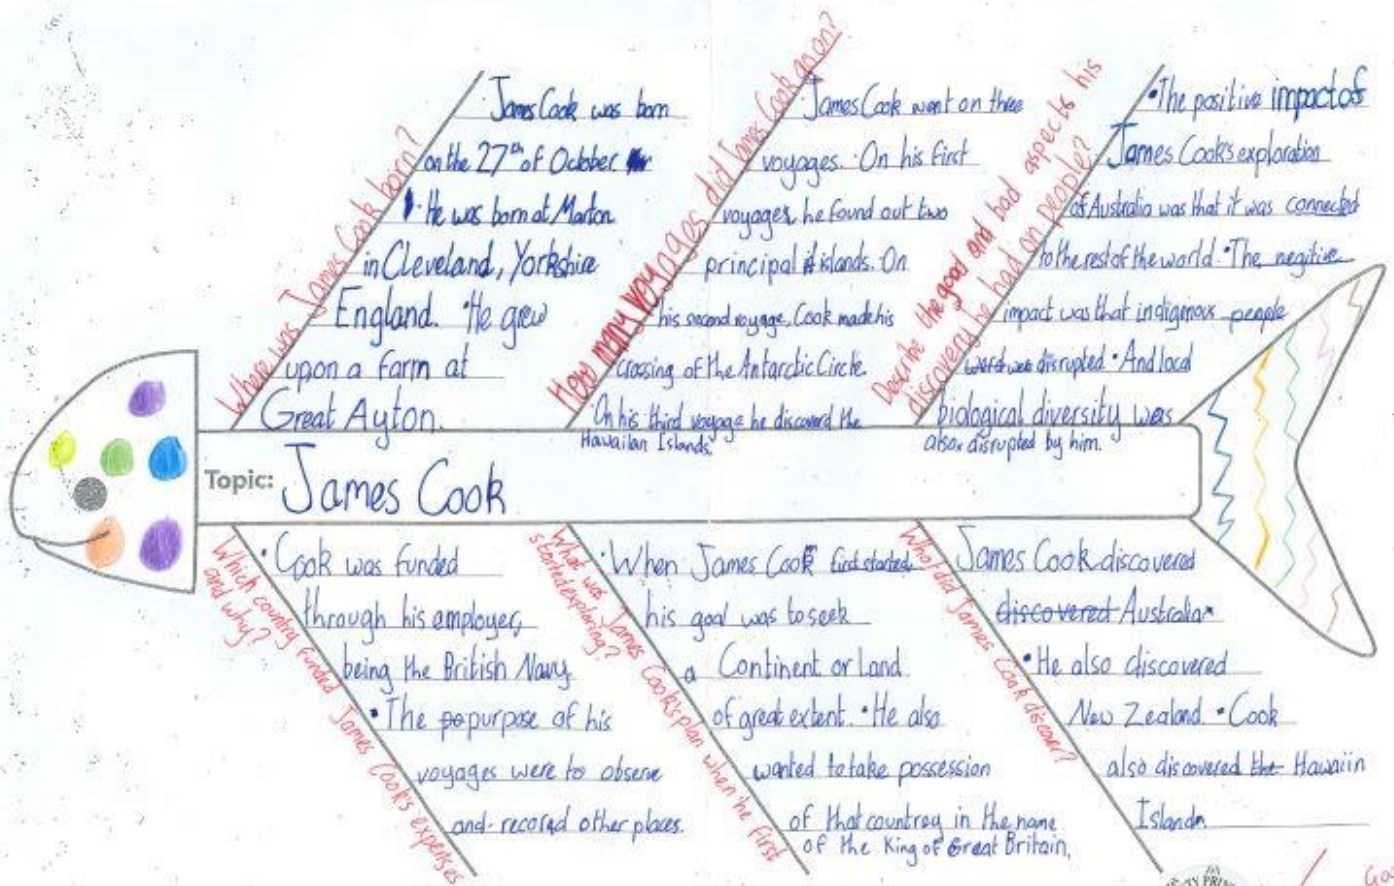 Where was James Cook born?
James Cook was born
on the 27th of October
• He was born at Marton
in Cleveland, Yorkshire
England. • He grew
upon a farm at
Great Ayton.
How many voyages did James Cook go on?
James Cook went on three
voyages. • On his first
voyages, he found out two
principal islands. On
his second voyage, Cook made his
crossing of the Antarctic Circle.
On his third voyage he discoverd the
Hawaiian Islands.
Describe the good and bad aspects his
discovery he had on people?
• The positive impact of
James Cook's exploration
of Australia was that it was connected
to the rest of the world. • The negitive
impact was that indigenous people
were disrupted • And local
biological diversity was
also disrupted by him.
Topic: James Cook
Which country funded James Cook's expenses
and why?
• Cook was funded
through his employer,
being the British Navy
• The purpose of his
voyages were to observe
and recored other places.
What was James Cook's plan when he first
started exploring?
• When James Cook first started
his goal was to seek
a Continent or Land
of great extent. • He also
wanted to take possession
of that country in the name
of the King of Great Britain,
What did James Cook discover?
James Cook discovered
discovered Australia
• He also discovered
New Zealand • Cook
also discovered the Hawaiin
Islands